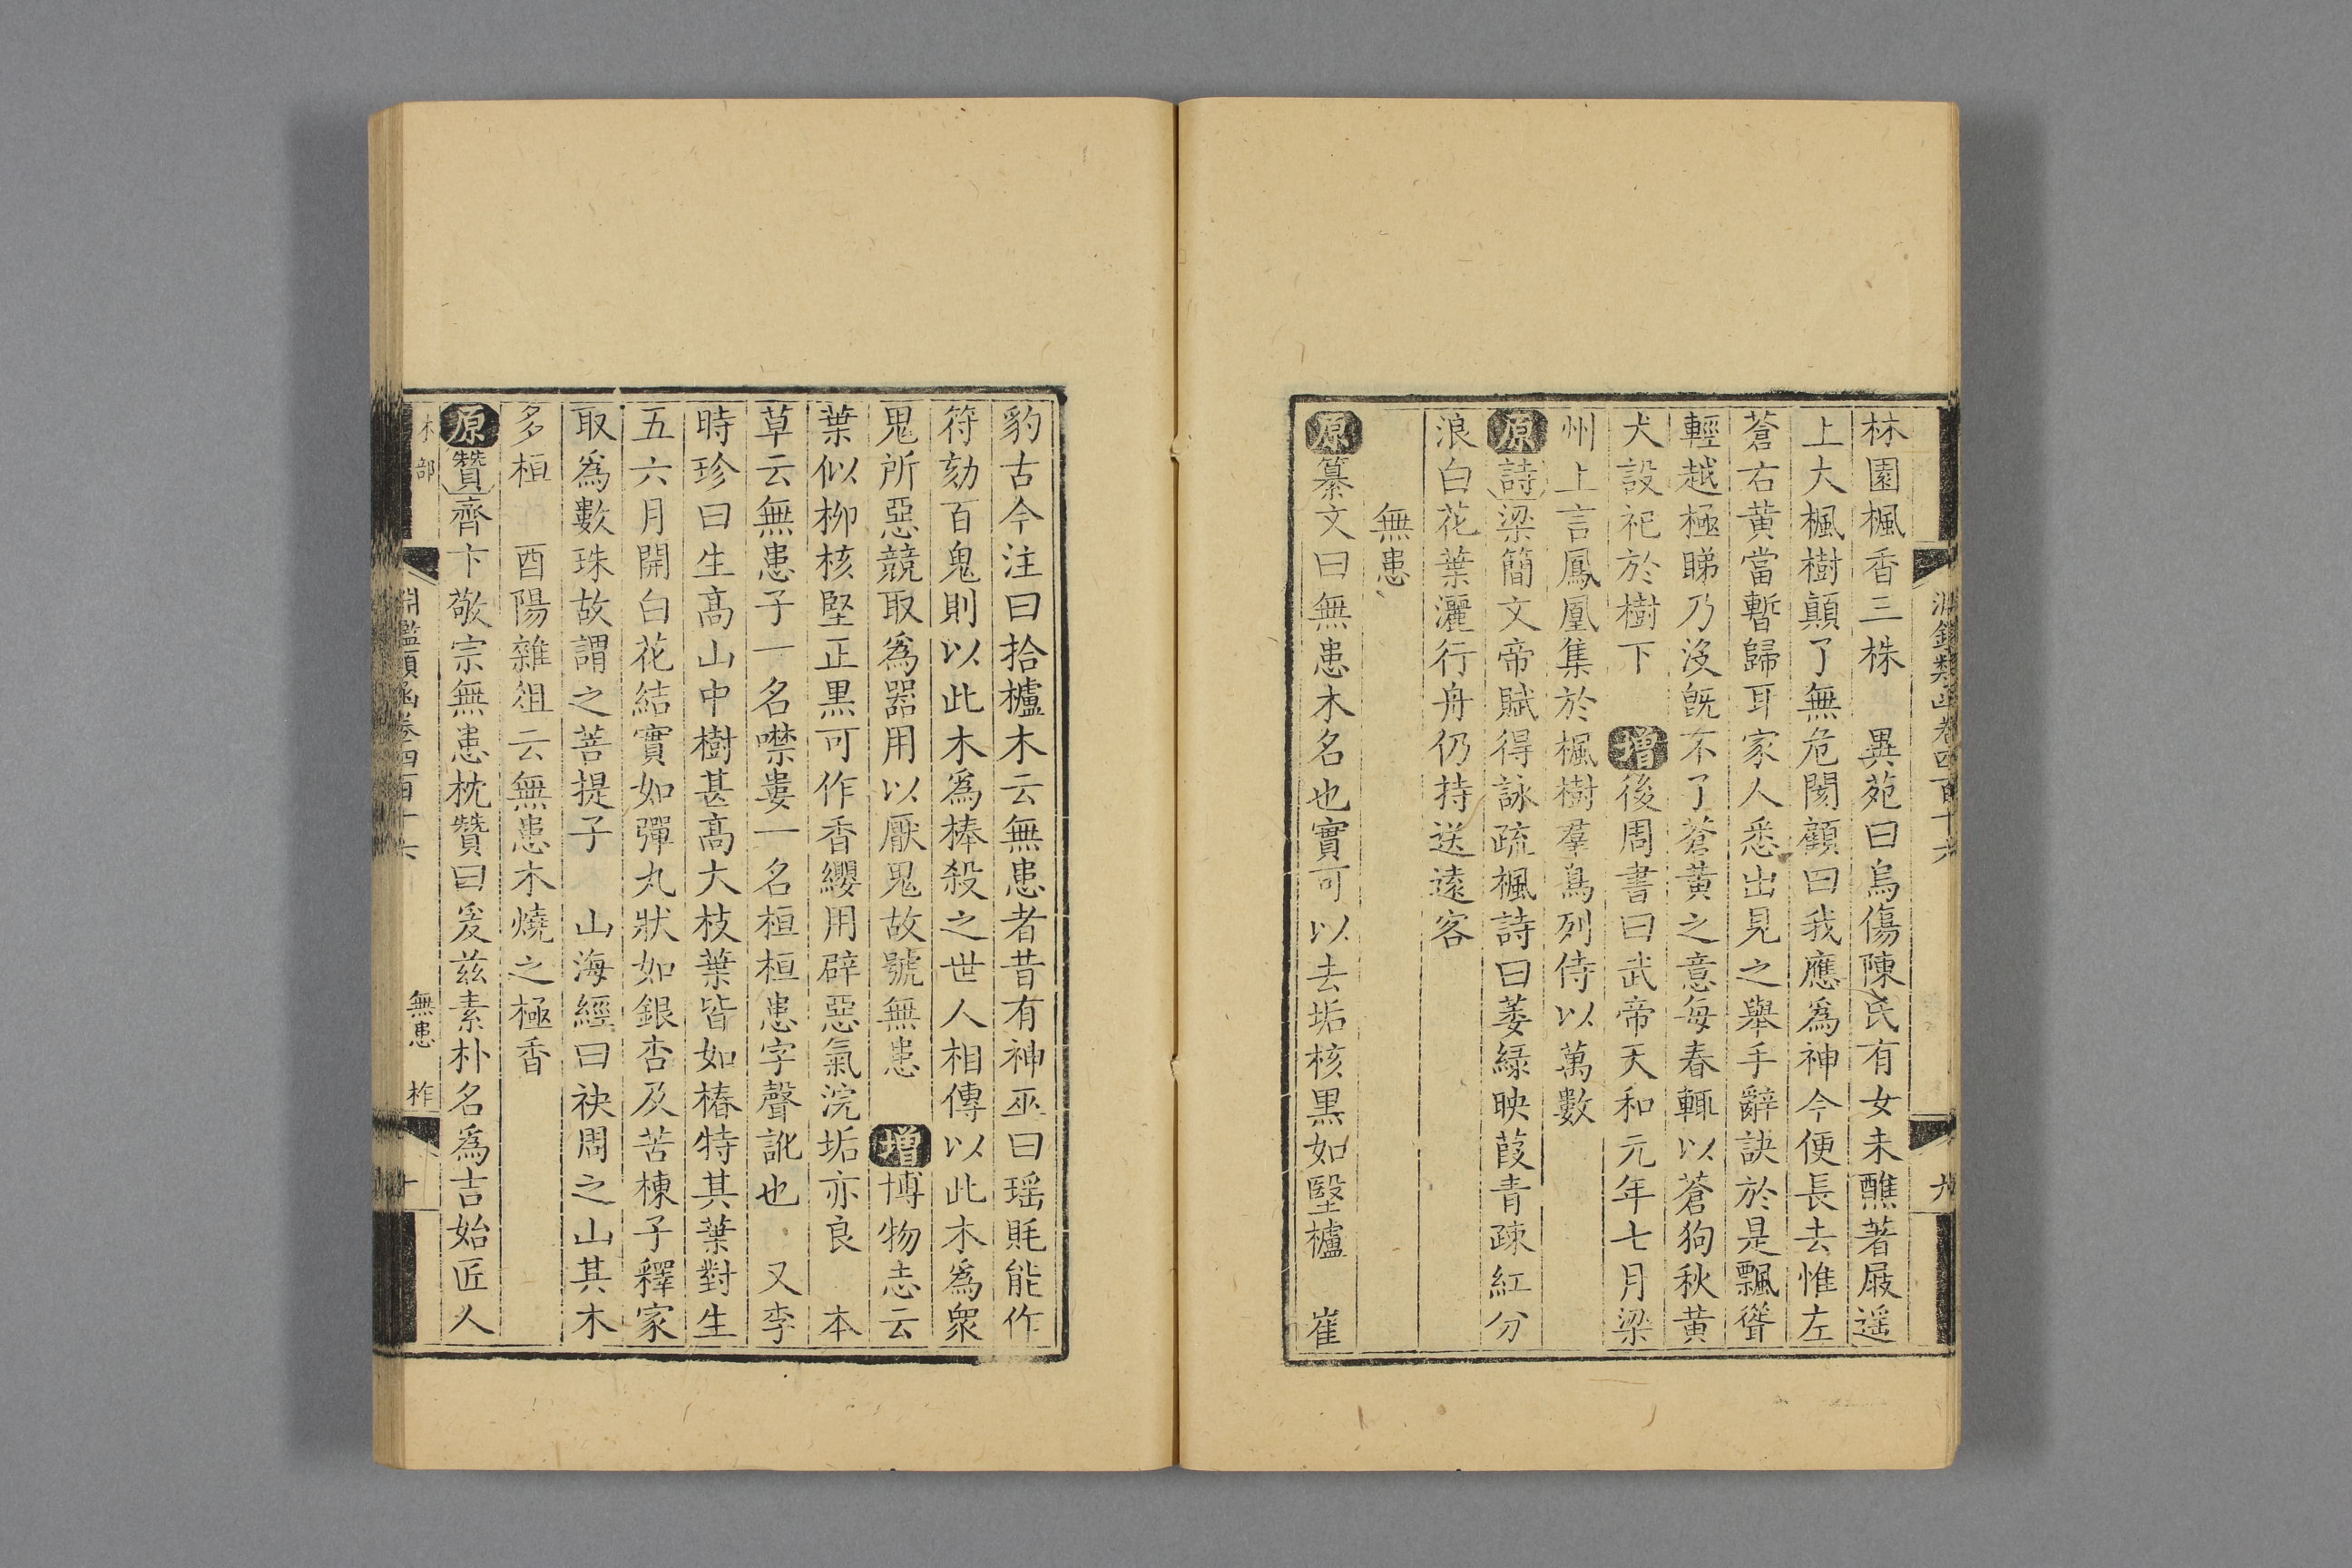 淵鑑類函卷四百十六
九
林園楓香三株　異苑曰烏傷陳氏有女未醮著屐遥
上大楓樹顛了無危閡顧曰我應爲神今便長去惟左
蒼右黃當暫歸耳家人悉出見之舉手辭訣於是飄聳
輕越極睇乃沒旣不了蒼黃之意每春輒以蒼狗秋黃
犬設祀於樹下　增後周書曰武帝天和元年七月梁
州上言鳳凰集於楓樹羣鳥列侍以萬數
原詩梁簡文帝賦得詠疏楓詩曰萎綠映葭青疎紅分
浪白花葉灑行舟仍持送遠客
無患
原纂文曰無患木名也實可以去垢核黑如堅櫨　崔
豹古今注曰拾櫨木云無患者昔有神巫曰瑶眊能作
符劾百鬼則以此木爲棒殺之世人相傳以此木爲衆
鬼所惡競取爲器用以厭鬼故號無患　增博物志云
葉似柳核堅正黑可作香纓用辟惡氣浣垢亦良　本
草云無患子一名噤婁一名桓桓患字聲訛也　又李
時珍曰生高山中樹甚高大枝葉皆如椿特其葉對生
五六月開白花結實如彈丸狀如銀杏及苦楝子釋家
取爲數珠故謂之菩提子　山海經曰袂周之山其木
多桓　酉陽雜俎云無患木燒之極香
原贊齊卞敬宗無患枕贊曰爰茲素朴名爲吉始匠人
木部
淵鑑類函卷四百十六
無患　柞
十